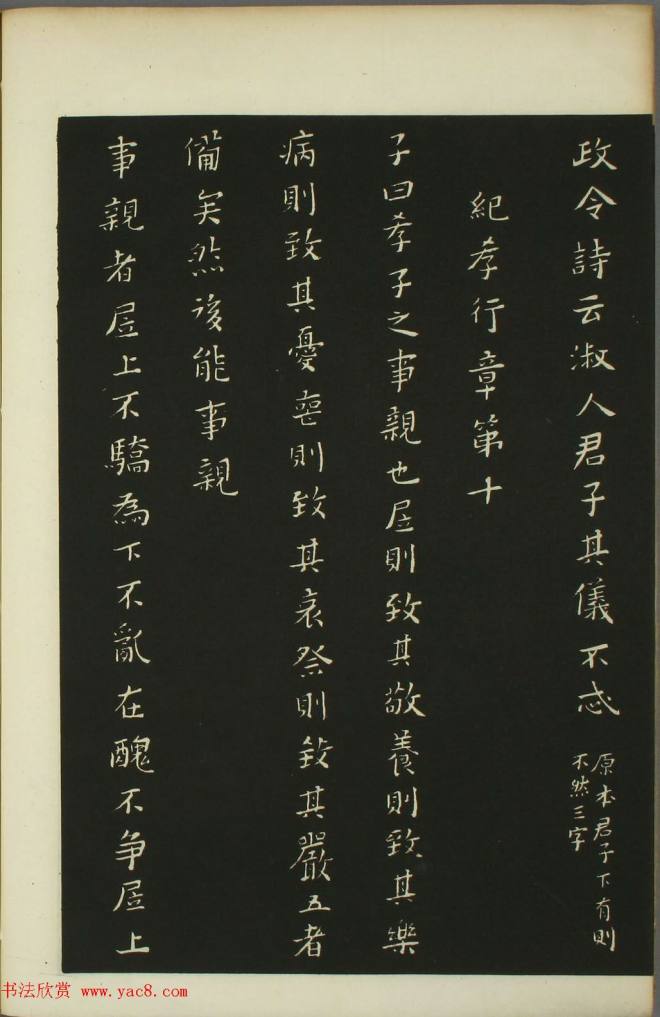 政令詩云淑人君子其儀不忒
原本君子下有則
不然三字
紀孝行章第十
子曰孝子之事親也居則致其敬養則致其樂
病則致其憂喪則致其哀祭則致其嚴五者
備矣然後能事親
事親者居上不驕為下不亂在醜不争居上
书法欣赏 www.yac8.com